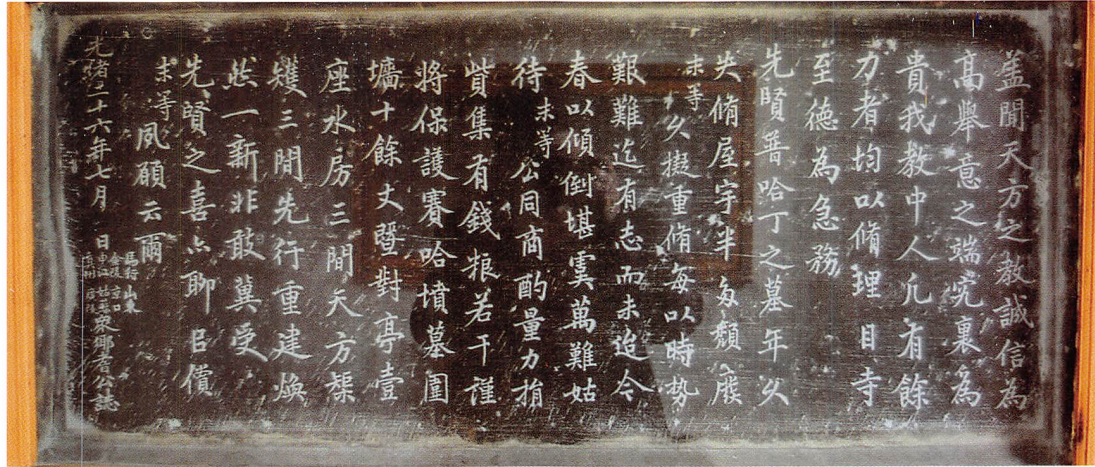 蓋聞天方之教誠信為
高舉意之端究裏為
貴我教中人凢有餘
力者均以脩理目寺
至德為急務
先賢普哈丁之墓年久
失脩屋宇半多頹廢
末等久擬重脩每以時勢
艱難迄有志而未迨今
春以傾倒堪虞萬難姑
待末等公同商酌量力捐
貲集有錢粮若干謹
將保護賽哈墳墓圍
墻十餘丈暨對亭壹
座水房三間天方槼
矱三間先行重建煥
然一新非敢冀受
先賢之喜亦聊㠯償
末等夙願云爾
光緒二十六年七月 日
山東
金陵 京口
眾鄉耆公誌